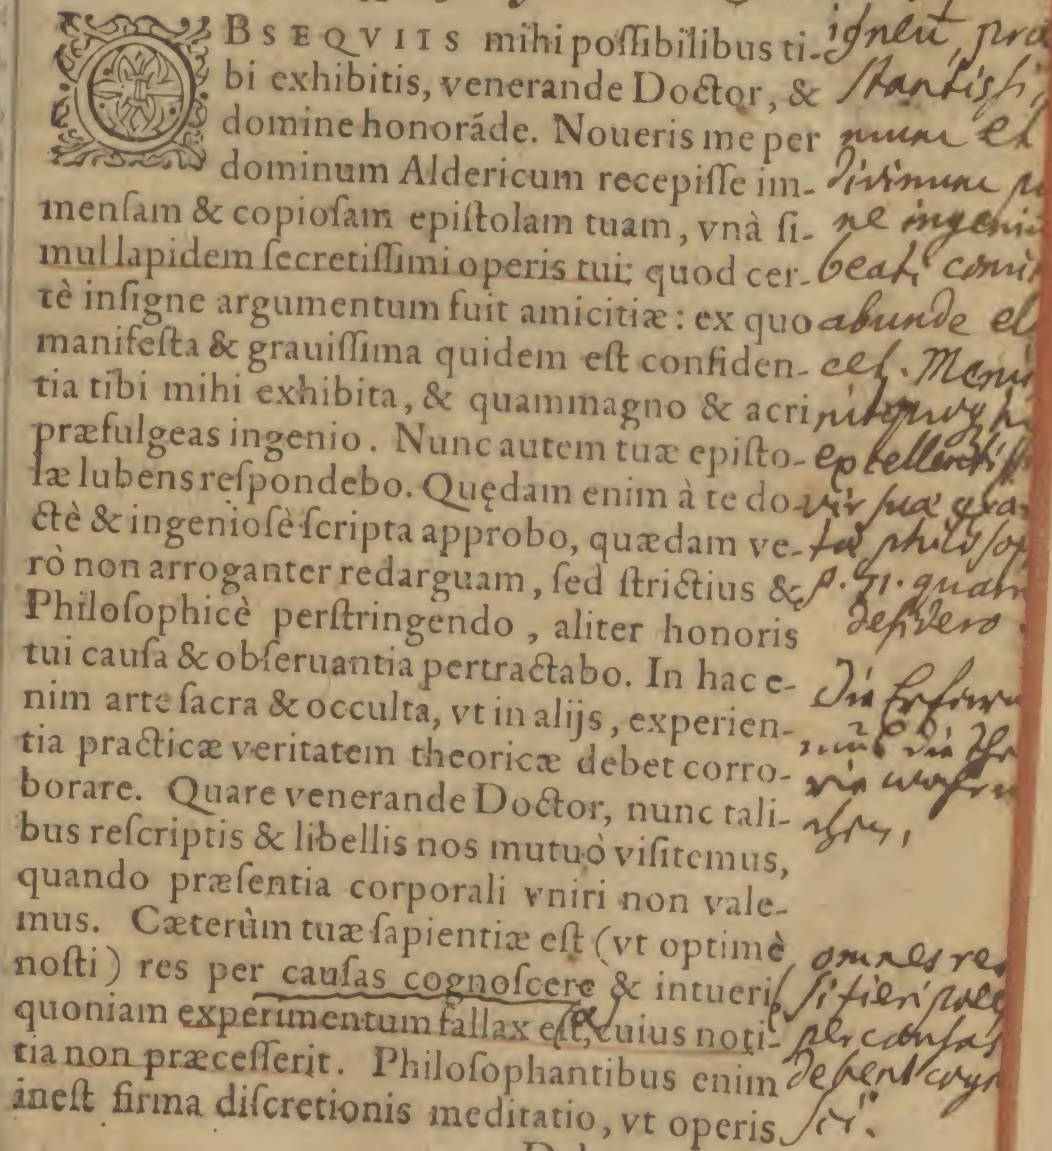 OBSEQVIIS mihi poſſibilibus ti-
bi exhibitis, venerande Doctor, &
domine honorãde. Noueris me per
dominum Aldericum recepiſſe im-
menſam & copioſam epiſtolam tuam, vnà ſi-
mul lapidem ſecretiſſimi operis tui: quod cer-
tè inſigne argumentum fuit amicitiæ: ex quo
manifeſta & grauiſſima quidem eſt confiden-
tia tibi mihi exhibita, & quammagno & acri
præfulgeas ingenio. Nunc autem tuæ epiſto-
læ lubens reſpondebo. Quędam enim à te do-
ctè & ingenioſè ſcripta approbo, quædam ve-
rò non arroganter redarguam, ſed ſtrictius &
Philoſophicè perſtringendo, aliter honoris
tui cauſa & obſeruantia pertractabo. In hac e-
nim arte ſacra & occulta, vt in alijs, experien-
tia practicæ veritatem theoricæ debet corro-
borare. Quare venerande Doctor, nunc tali-
bus reſcriptis & libellis nos mutuò viſitemus,
quando præſentia corporali vniri non vale-
mus. Cæterùm tuæ ſapientiæ eſt (vt optimè
noſti) res per cauſas cognoſcere & intueri,
quoniam experimentum fallax eſt, cuius noti-
tia non præceſſerit. Philoſophantibus enim
ineſt firma diſcretionis meditatio, vt operis
ſtantiſſi
mum et
divinum
ne ingenii
beati comi
abunde el
cet.
vir suæ
philosop
quam
desidero.
Die
die
omnes res
si fieri
per causas
debent cogn
sci.